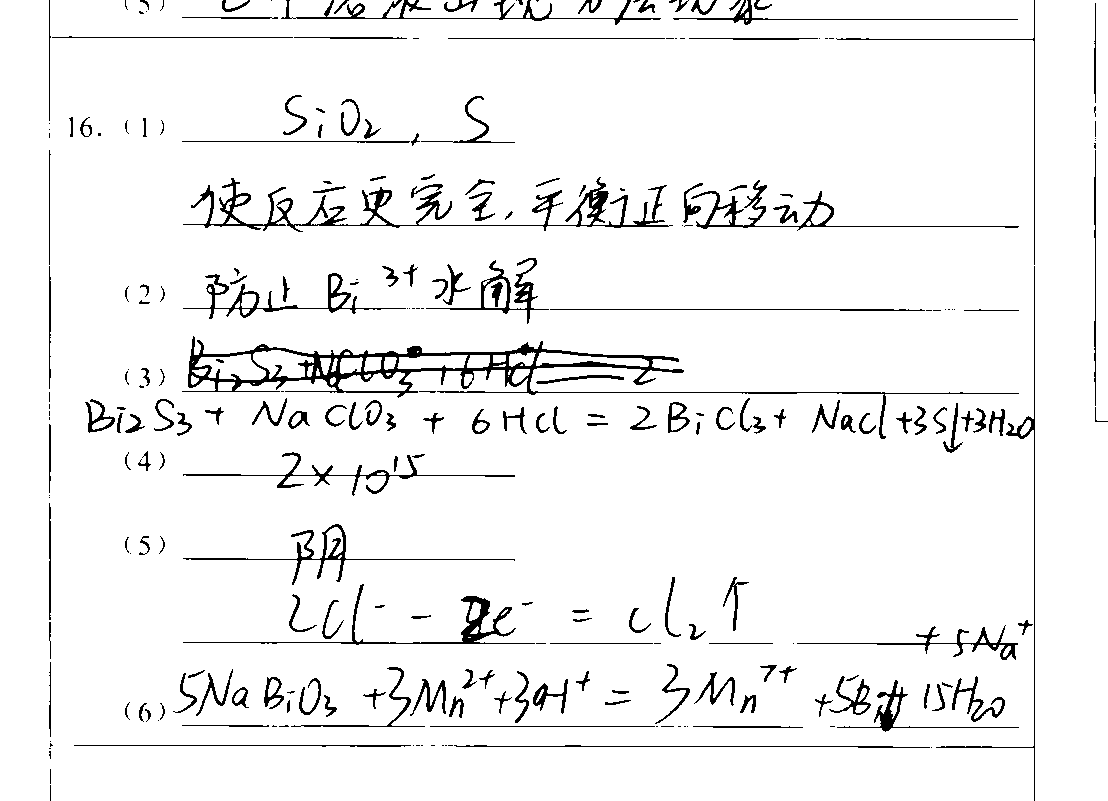 16. (1) SiO₂, S
使反应更完全,平衡正向移动
(2) 防止 Bi³⁺水解
(3) Bi₂S₃+NaClO₃+6HCl═2
Bi₂S₃ + NaClO₃ + 6HCl = 2BiCl₃ + NaCl+3S↓+3H₂O
(4) 2×10¹⁵
(5) 阴
2Cl⁻ - 2e⁻ = Cl₂↑
+5Na⁺
(6) 5NaBiO₃ +3Mn²⁺+30H⁺ = 3Mn⁷⁺ +5Bi 15H₂O